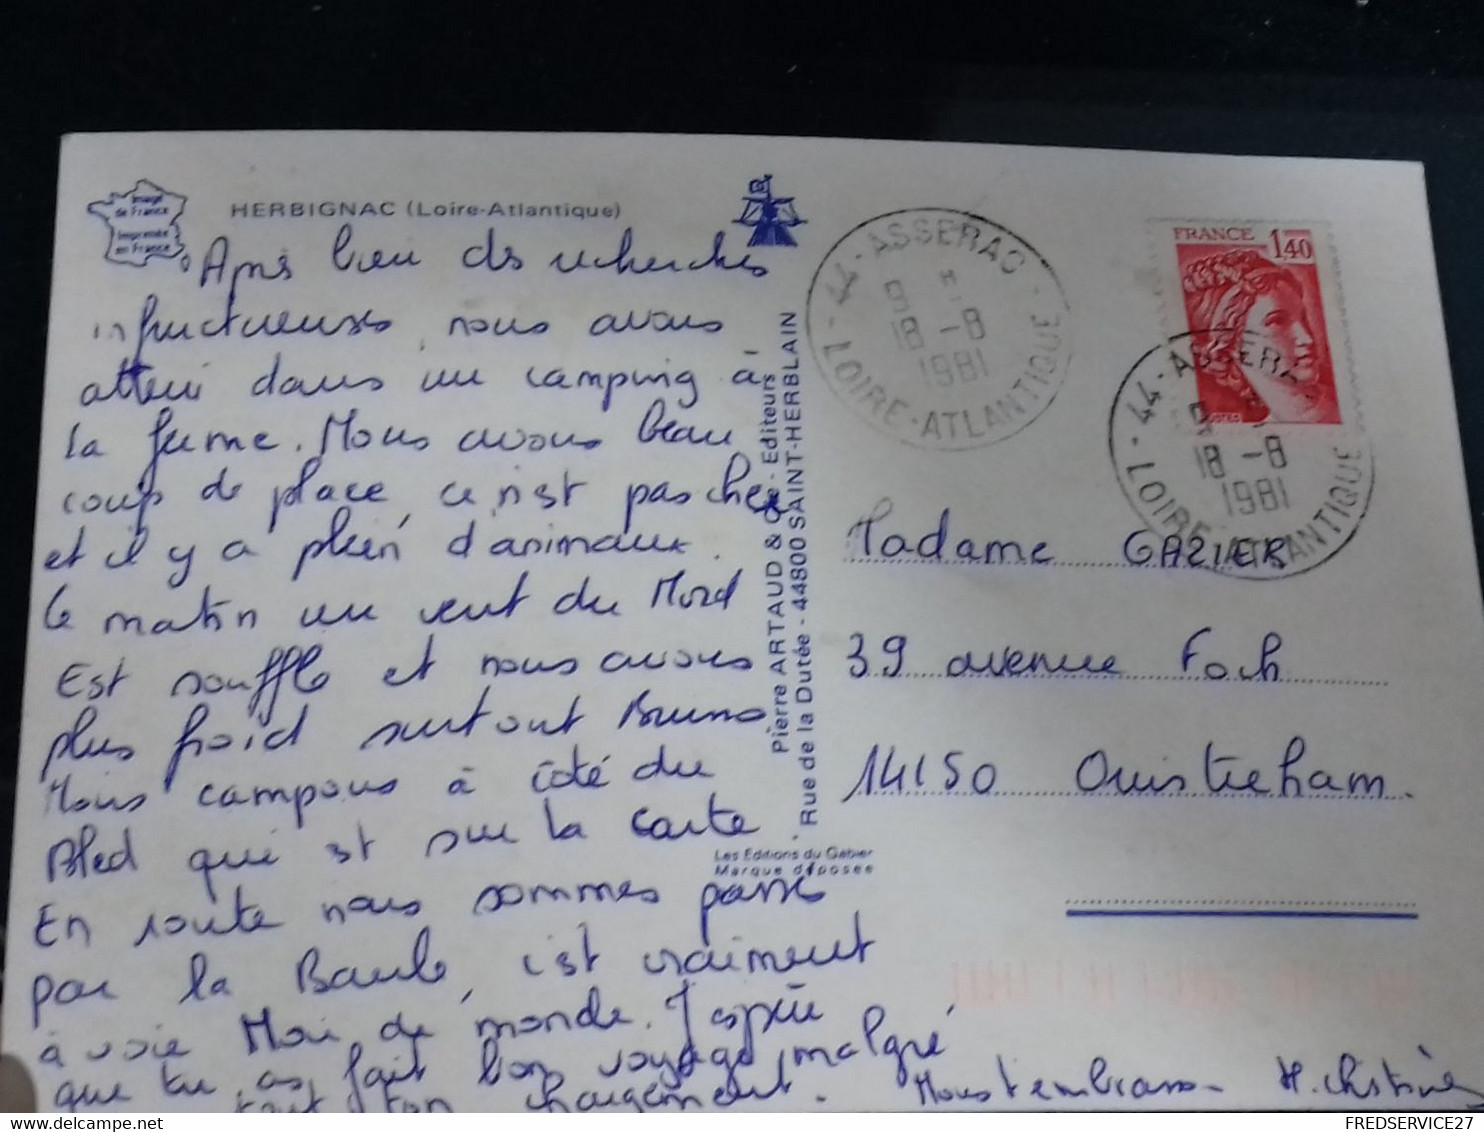 Image
de France
Imprimée
en France
HERBIGNAC (Loire-Atlantique)
Après bien des recherches
infructueuses, nous avons
atterri dans un camping à
la ferme. Nous avons beau
coup de place, ce n'est pas cher
et il y a plein d'animaux.
le matin un vent du Nord
Est souffle et nous avons
plus froid surtout Bruno
Nous campons à côté du
Bled qui est sur la carte
En route nous sommes passés
par la Baule, c'est vraiment
à voir Noir de monde. J'espère
que tu as fait bon voyage, malgré
tout ton chargement. Nous t'embrassons M. Christine
Pierre ARTAUD & Cie - Editeurs
Rue de la Dutée - 44800 SAINT-HERBLAIN
Les Editions du Gabier
Marque déposée
44 - ASSERAC
18 -8
1981
LOIRE-ATLANTIQUE
FRANCE 1,40
POSTES
44 - ASSERA
18 -8
1981
LOIRE-ATLANTIQUE
Madame GAZIER
39 avenue Foch
14150 Ouistreham.
FREDSERVICE27